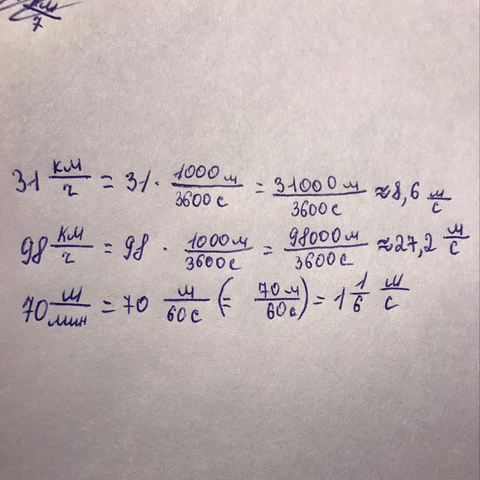 км/7
31 км/ч = 31 · 1000 м/3600 с = 31000 м/3600 с ≈ 8,6 м/с
98 км/ч = 98 · 1000 м/3600 с = 98000 м/3600 с ≈ 27,2 м/с
70 м/мин = 70 м/60 с (= 70 м/60 с) = 1 1/6 м/с